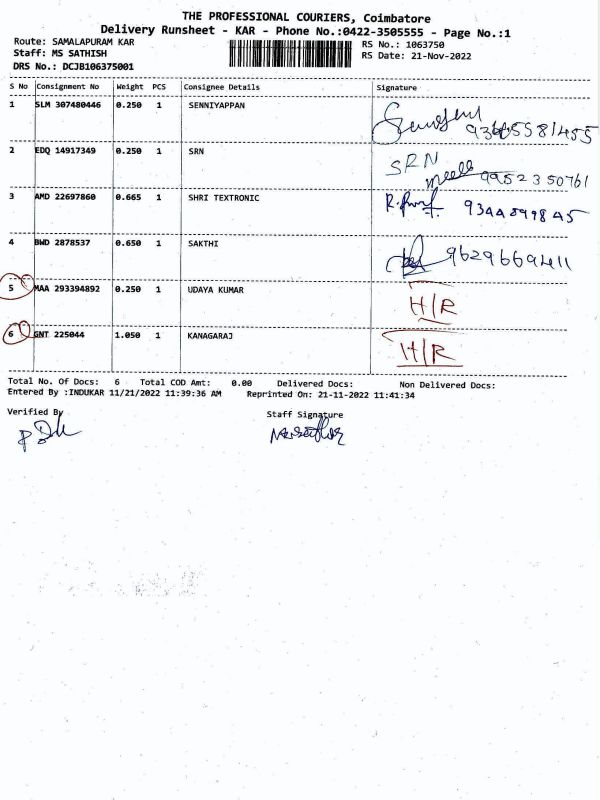 THE PROFESSIONAL COURIERS, Coimbatore
Delivery Runsheet - KAR - Phone No.:0422-3505555 - Page No.:1
Route: SAMALAPURAM KAR
Staff: MS SATHISH
DRS No.: DCJB106375001
RS No.: 1063750
RS Date: 21-Nov-2022
S No Consignment No Weight PCS Consignee Details Signature
1 SLM 307480446 0.250 1 SENNIYAPPAN
2 EDQ 14917349 0.250 1 SRN SRN
9952350761
3 AMD 22697860 0.665 1 SHRI TEXTRONIC
4 BWD 2878537 0.650 1 SAKTHI 9629669411
5 MAA 293394892 0.250 1 UDAYA KUMAR H/R
6 GNT 225044 1.050 1 KANAGARAJ H/R
Total No. Of Docs: 6 Total COD Amt: 0.00 Delivered Docs: Non Delivered Docs:
Entered By :INDUKAR 11/21/2022 11:39:36 AM Reprinted On: 21-11-2022 11:41:34
Verified By
Staff Signature